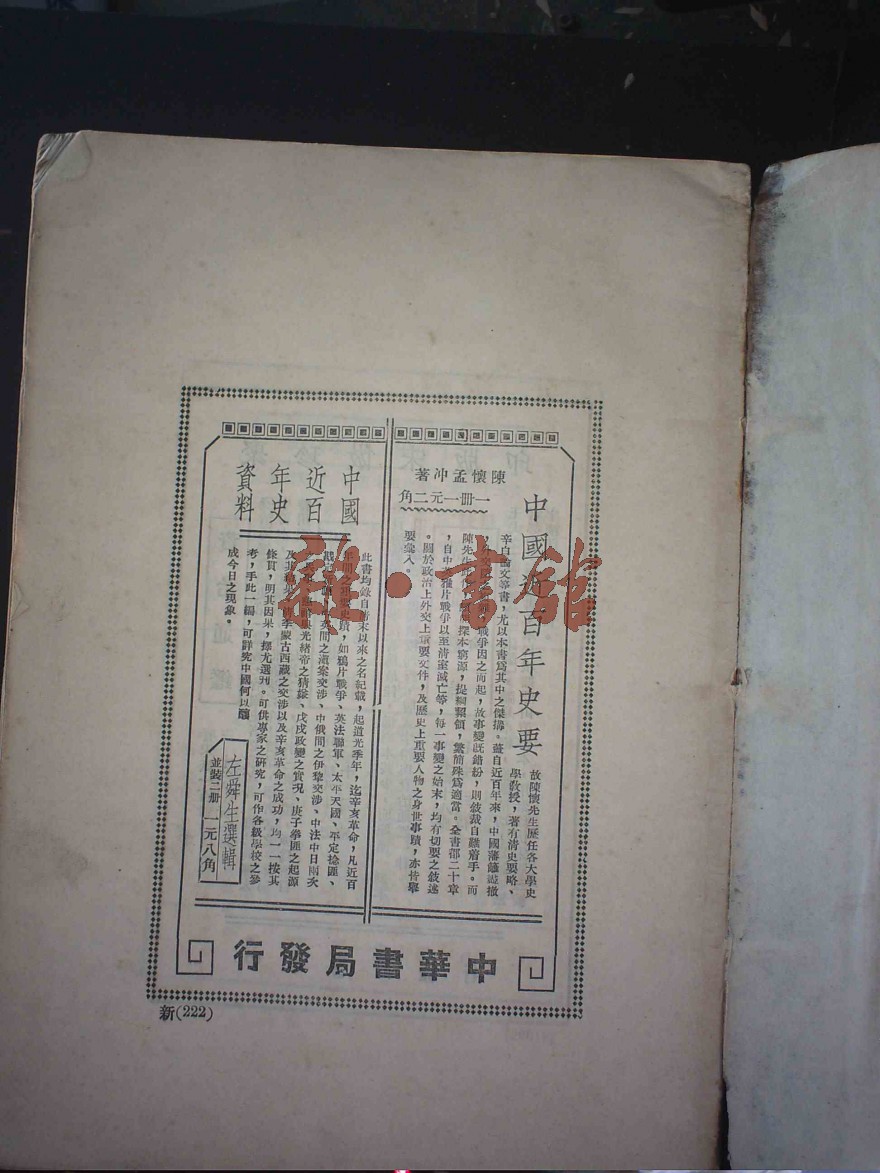 中國近百年史要
陳懷孟沖著
一册一元二角
故陳懷先生歷任各大學史
學教授，著有清史要略、
辛白論文等書，尤以本書爲其中之傑搆。蓋自近百年來，中國藩籬盡撤
戰爭因之而起，故事變既錯紛，則敍裁自難着手。而
陳先生
探本窮源，提綱絜領，繁簡殊爲適當。全書都二十章
，自中英鴉片戰爭以至清室滅亡等，每一事變之始末，均有切要之敍述
。關於政治上外交上重要文件，及歷史上重要人物之身世事蹟，亦皆舉
要彙入。
中國
近百
年史
資料
此書均錄自清末以來之名紀載，起道光季年，迄辛亥革命，凡近百
年間之重要史蹟，如鴉片戰爭、英法聯軍、太平天國、平定捻匪、
英間之滇案交涉、中俄間之伊犂交涉、中法中日兩次
與光緒帝之猜嫌、戊戌政變之實况、庚子拳匪之起源
及其
清季蒙古西藏之交涉以及辛亥革命之成功，均一一按其
條貫，明其因果，擇尤選刊。可供專家之研究，可作各級學校之參
考，手此一編，可詳究中國何以釀
成今日之現象。
左舜生選輯
並裝二册 一元八角
中華書局發行
新(222)
雜·書館